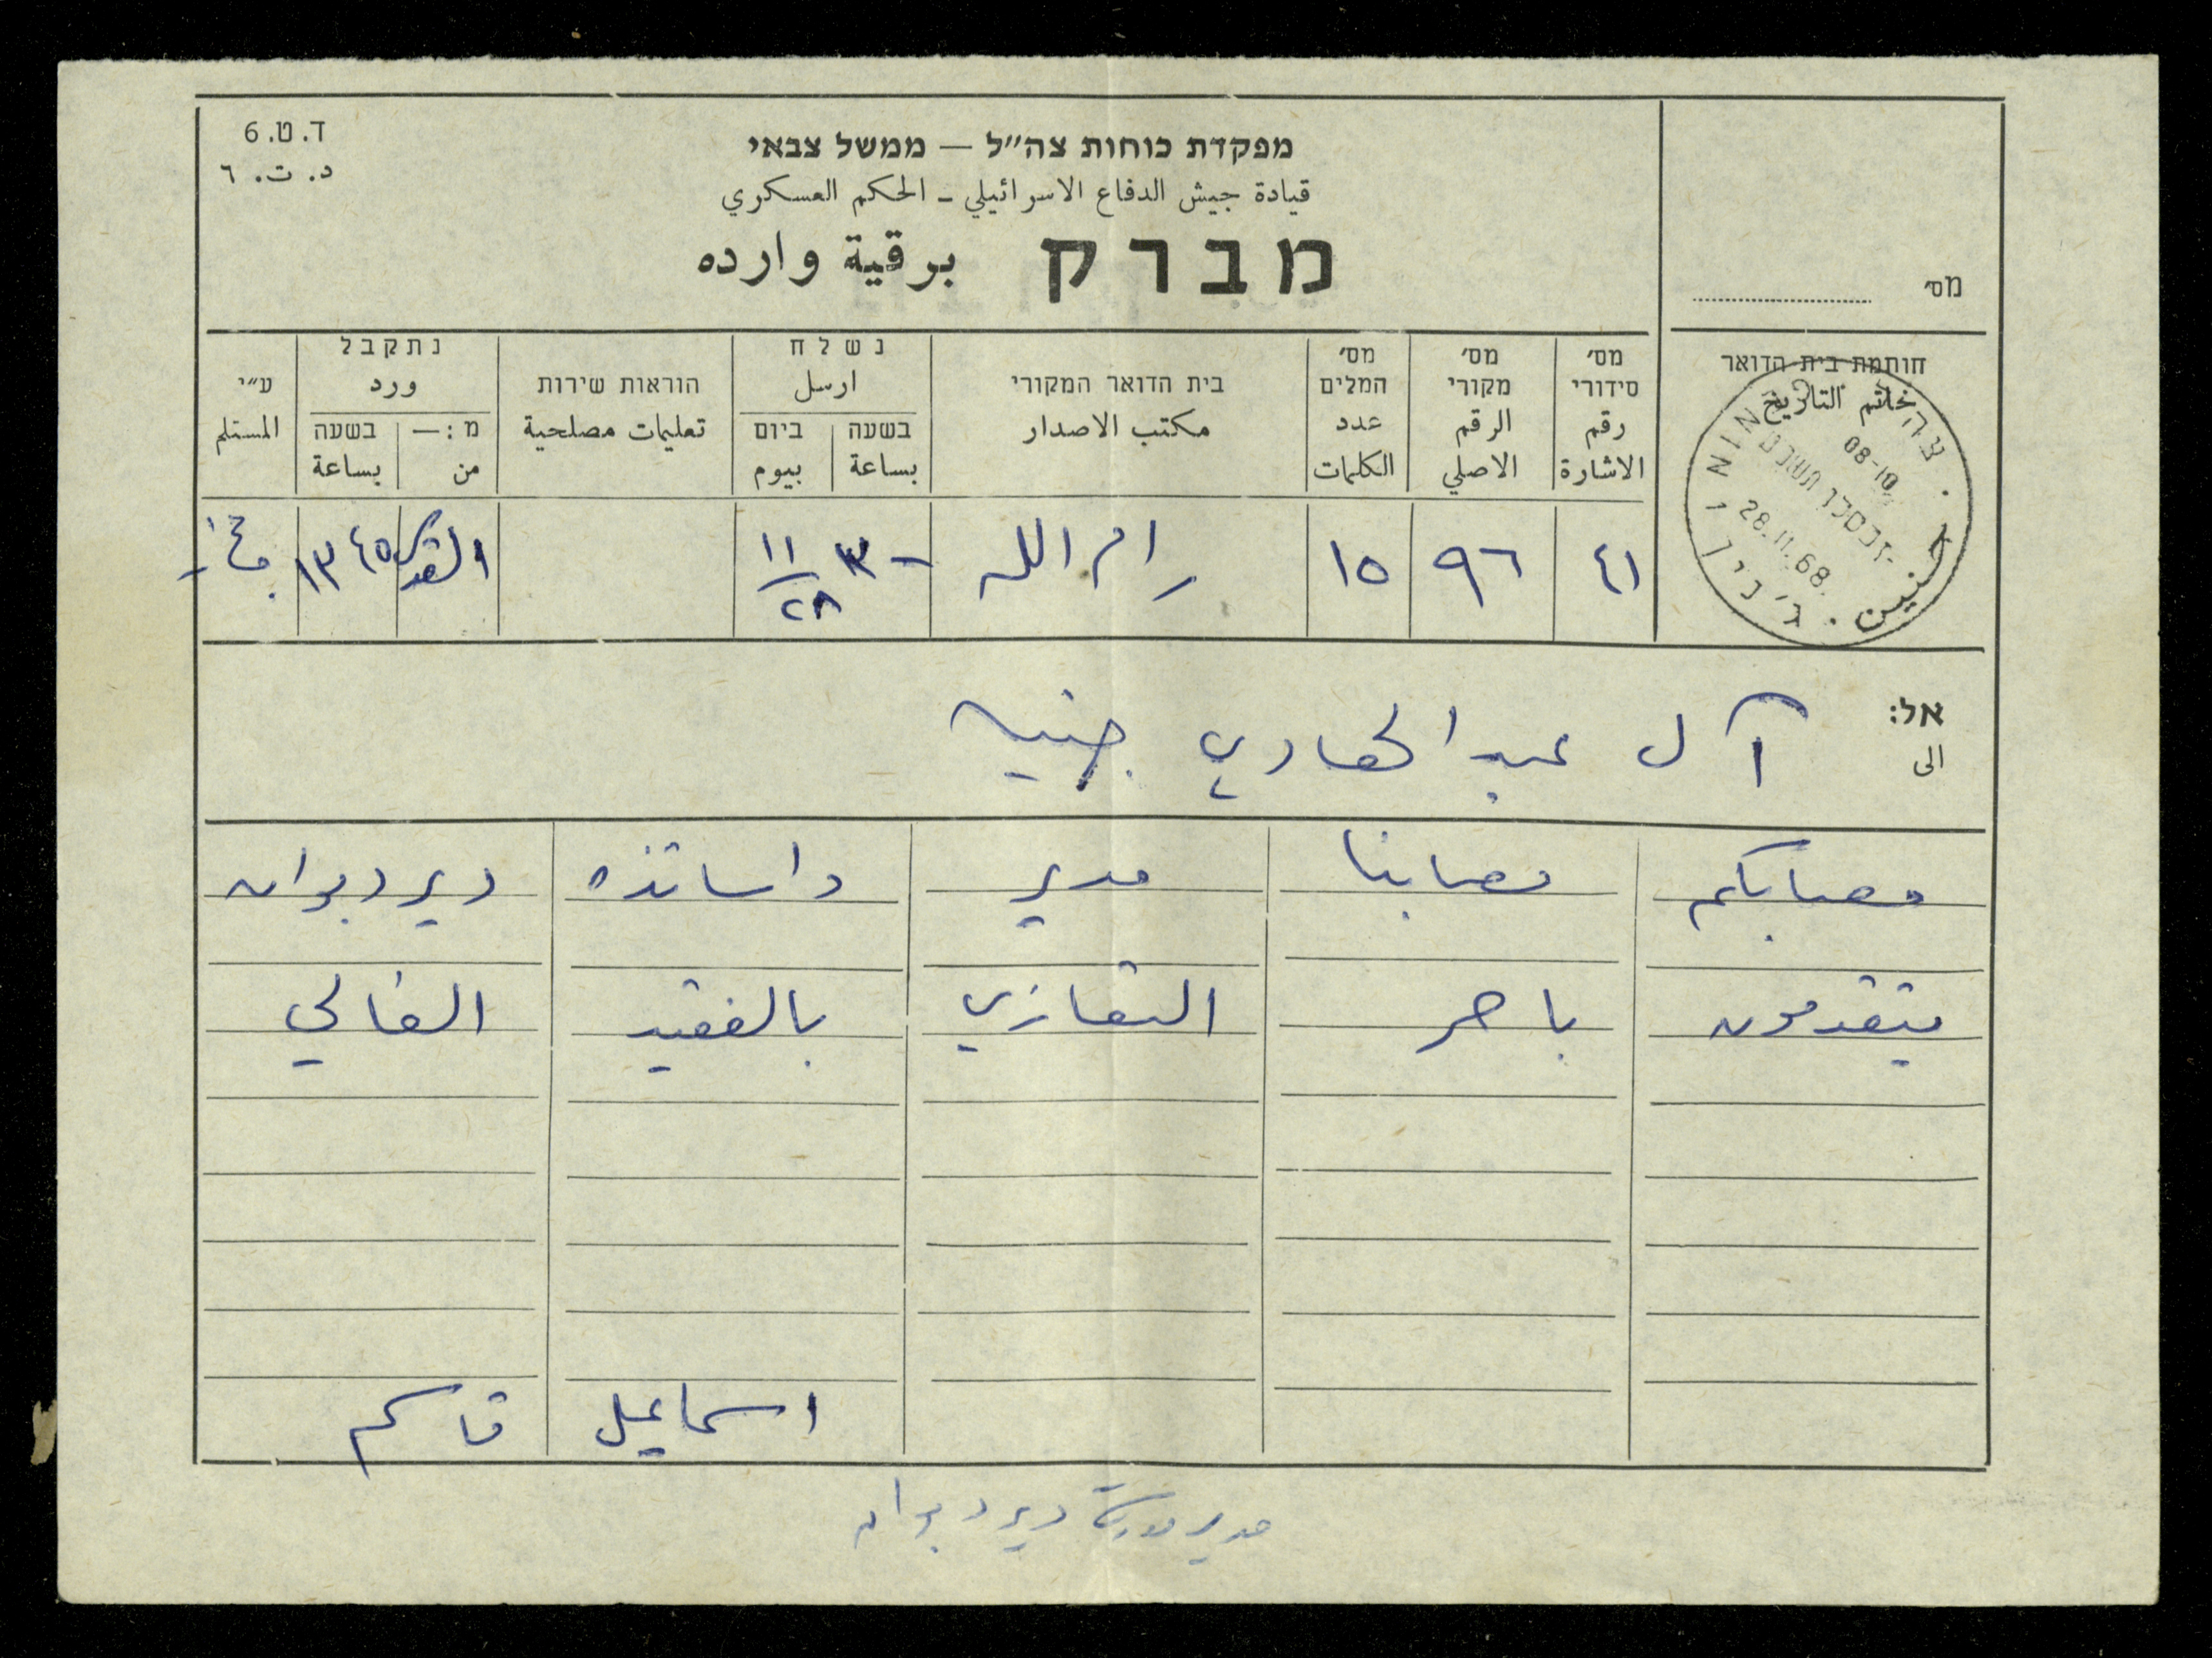 ד.ט.6
د. ت. ٦
מפקדת כוחות צה״ל — ממשל צבאי
قيادة جيش الدفاع الاسرائيلي - الحكم العسكري
מברק برقية وارده
מס׳
חותמת בית הדואר
خاتم التاريخ
08-10
28.11.68
جنين
ג׳נין
מס׳ סידורי رقم الاشارة
מס׳ מקורי الرقم الاصلي
מס׳ המלים عدد الكلمات
בית הדואר המקורי مكتب الاصدار
נשלח ارسل
בשעה بساعة
ביום بيوم
הוראות שירות تعليمات مصلحية
נתקבל ورد
מ:— من
בשעה بساعة
ע״י المستلم
٤١ ٩٦ ١٥ رام الله ١١/٢٨ القدس ١٣٤٥
אל: الى آل عبد الهادي جنين
مصابكم مصابنا مدير واساتذه ديردبوان
يتقدمون باحر التعازي بالفقيد الغالي
اسماعيل قاسم
مدير مدرسة ديردبوان